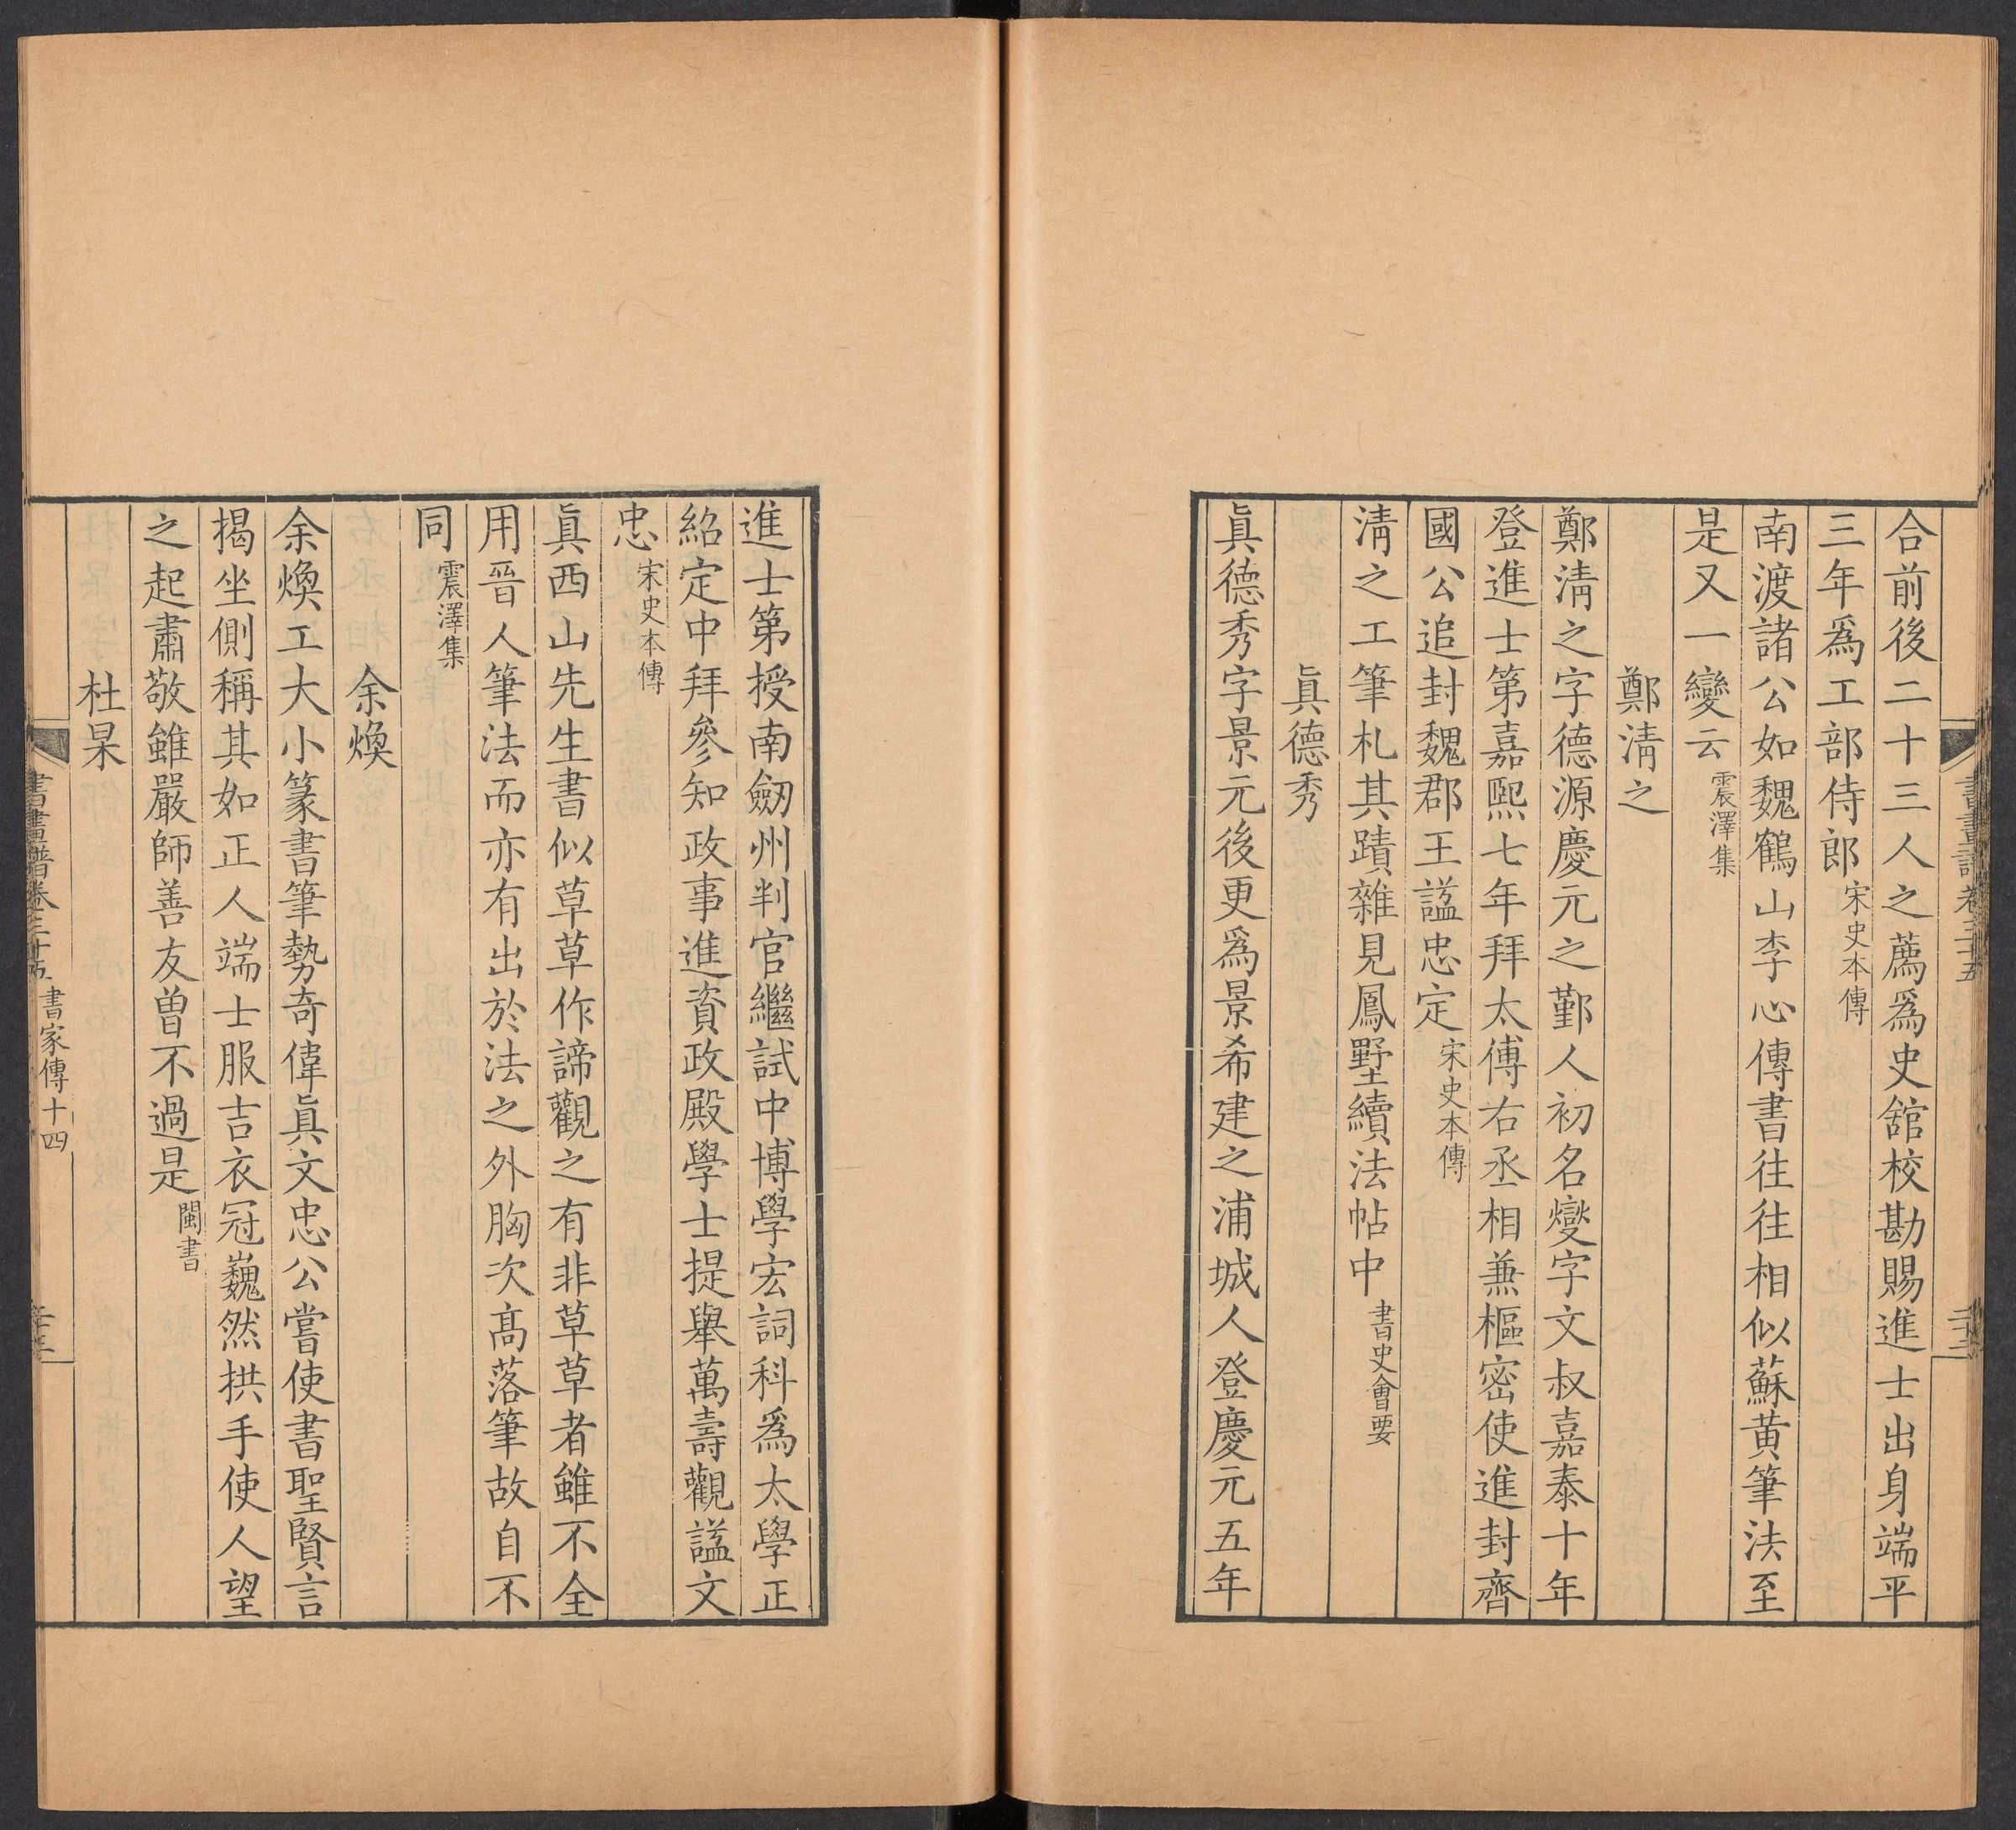 合前後二十三人之薦爲史舘校勘賜進士出身端平
三年爲工部侍郎宋史本傳
南渡諸公如魏鶴山李心傳書往往相似蘇黄筆法至
是又一變云震澤集
鄭淸之
鄭淸之字德源慶元之鄞人初名燮字文叔嘉泰十年
登進士第嘉熙七年拜太傅右丞相兼樞密使進封齊
國公追封魏郡王諡忠定宋史本傳
淸之工筆札其蹟雜見鳳墅續法帖中書史會要
眞德秀
眞德秀字景元後更爲景希建之浦城人登慶元五年
進士第授南劒州判官繼試中博學宏詞科爲太學正
紹定中拜參知政事進資政殿學士提舉萬壽觀諡文
忠宋史本傳
眞西山先生書似草草作諦觀之有非草草者雖不全
用晉人筆法而亦有出於法之外胸次高落筆故自不
同震澤集
余煥
余煥工大小篆書筆勢奇偉眞文忠公嘗使書聖賢言
揭坐側稱其如正人端士服吉衣冠巍然拱手使人望
之起肅敬雖嚴師善友曾不過是閩書
杜杲
書家傳十四